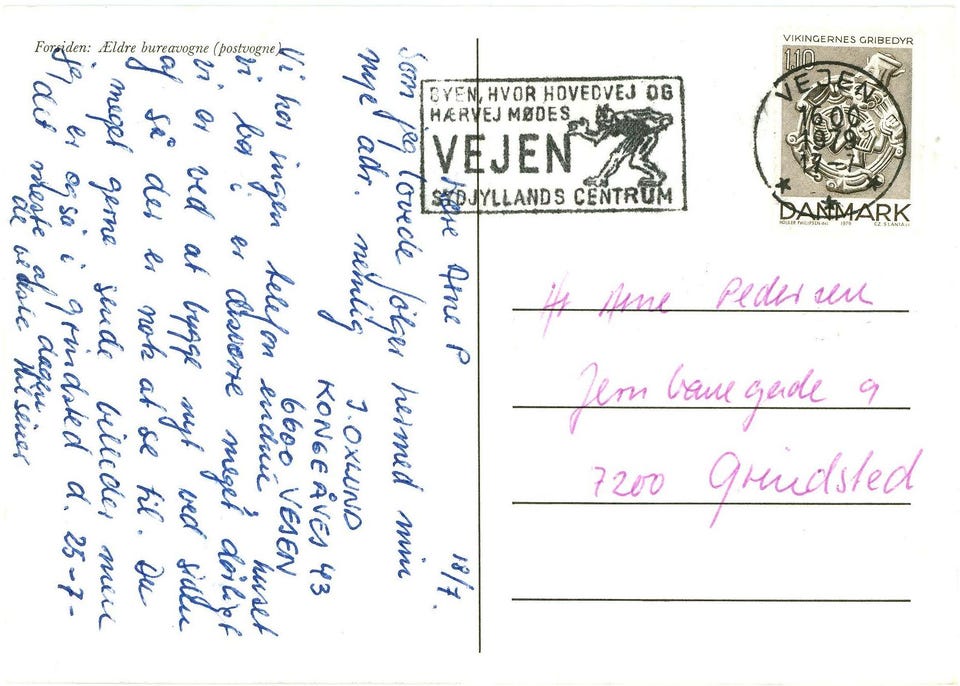 Forsiden: Ældre bureauvogne (postvogne)
18/7.
Arne P
Som jeg lovede følger hermed min
nye adr. nemlig
J. OXLUND
KONGEÅVEJ 43
6600 VEJEN
Vi har ingen telefon endnu, huset
vi bor i er desværre meget dårligt
vi er ved at bygge nyt ved siden
af så der er nok at se til. Du
må meget gerne sende billeder men
jeg er også i Grindsted d. 25-7-
det meste af dagen
de bedste hilsener
BYEN, HVOR HOVEDVEJ OG
HÆRVEJ MØDES
VEJEN
SYDJYLLANDS CENTRUM
VEJEN
1979
VIKINGERNES GRIBEDYR
110
DANMARK
HOLGER PHILIPSEN del. 1979 CZ. SLANIA sc.
Hr Arne Pedersen
Jernbanegade 9
7200 Grindsted